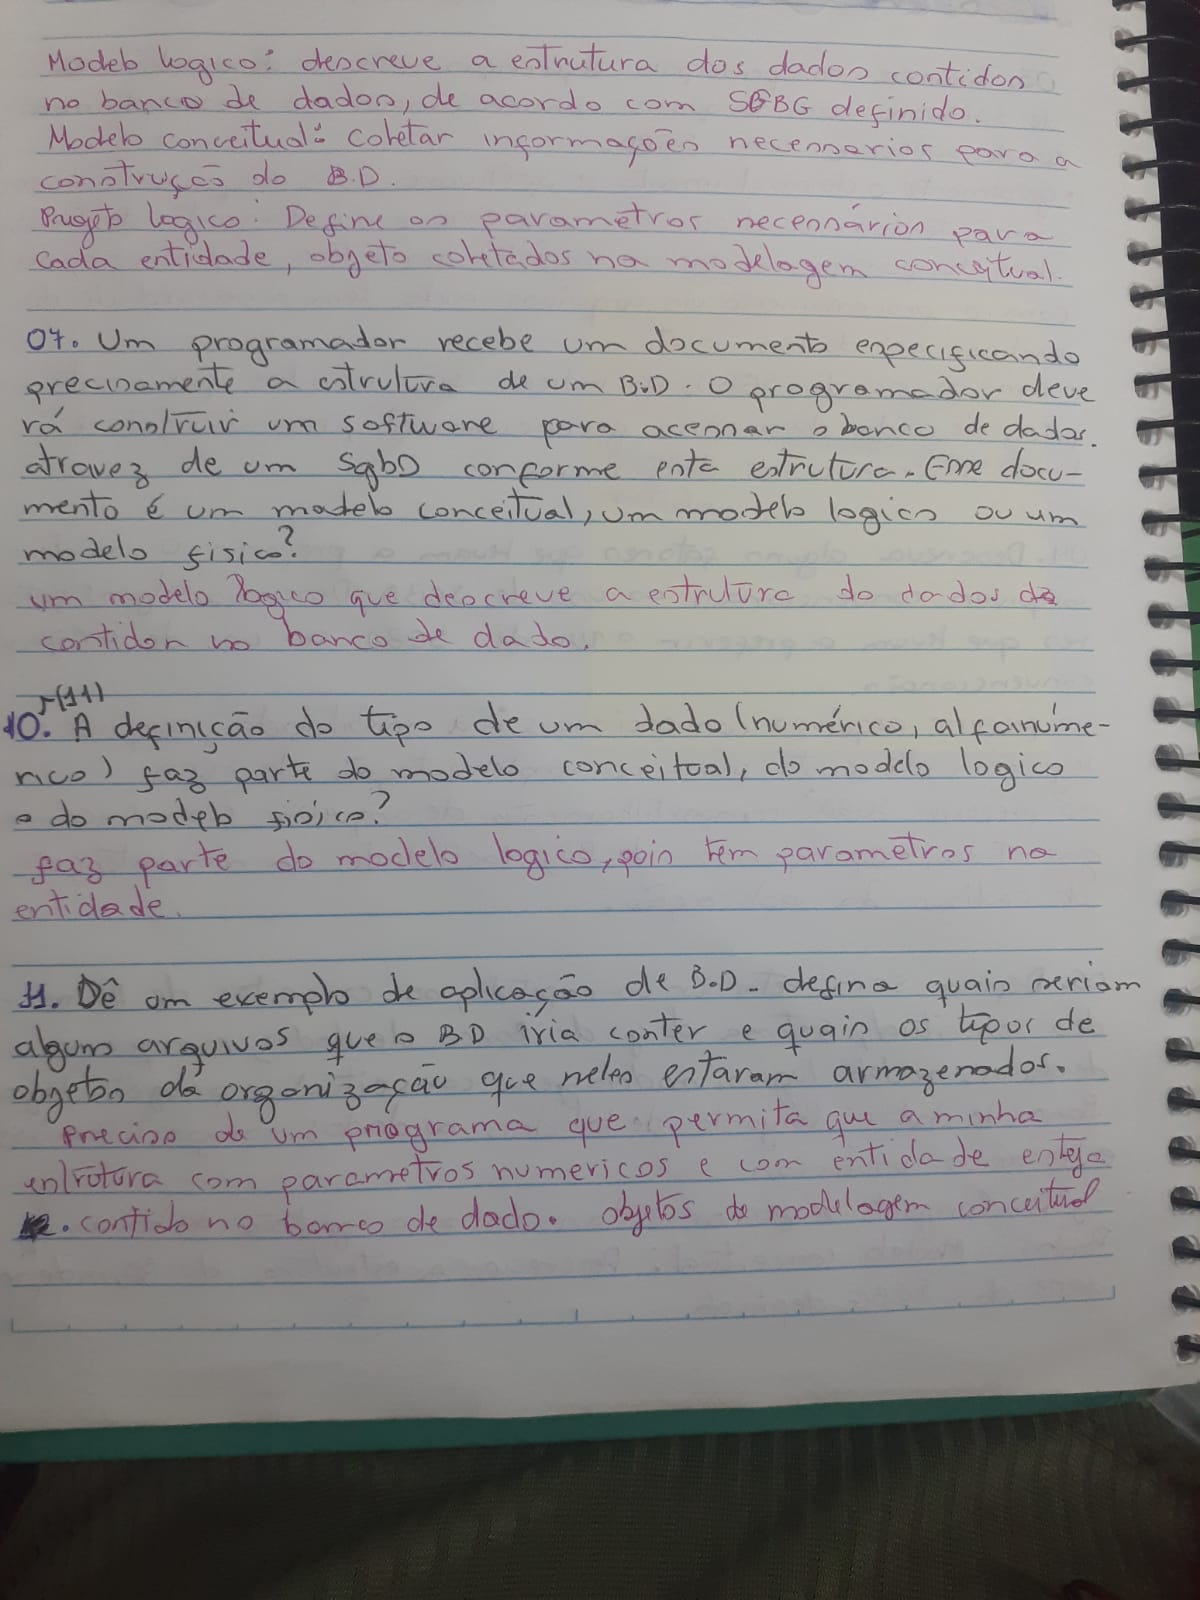 Modelo logico: descreve a estrutura dos dados contidos
no banco de dados, de acordo com SGBG definido.
Modelo conceitual: coletar informações necessarios para a
construção do B.D.
Projeto logico: Define os parametros necessários para
cada entidade, objeto coletados na modelagem conceitual.
07. Um programador recebe um documento especificando
precisamente a estrutura de um B.D. O programador deve
rá construir um software para acessar o banco de dados.
atravez de um SgbD conforme esta estrutura. Esse docu-
mento é um modelo conceitual, um modelo logico ou um
modelo fisico?
um modelo logico que descreve a estrutura do dados de
contidos no banco de dado.
r(11)
10. A definição do tipo de um dado (numérico, alfanúme-
rico) faz parte do modelo conceitual, do modelo logico
o do modelo fisico?
faz parte do modelo logico, pois tem parametros na
entidade.
11. Dê um exemplo de aplicação de B.D. defina quais seriam
alguns arquivos que o BD iria conter e quais os tipos de
objetos da organização que neles estaram armazenados.
Preciso de um programa que permita que a minha
estrutura com parametros numericos e com entidade esteja
. contido no banco de dado. objetos de modelagem conceitual